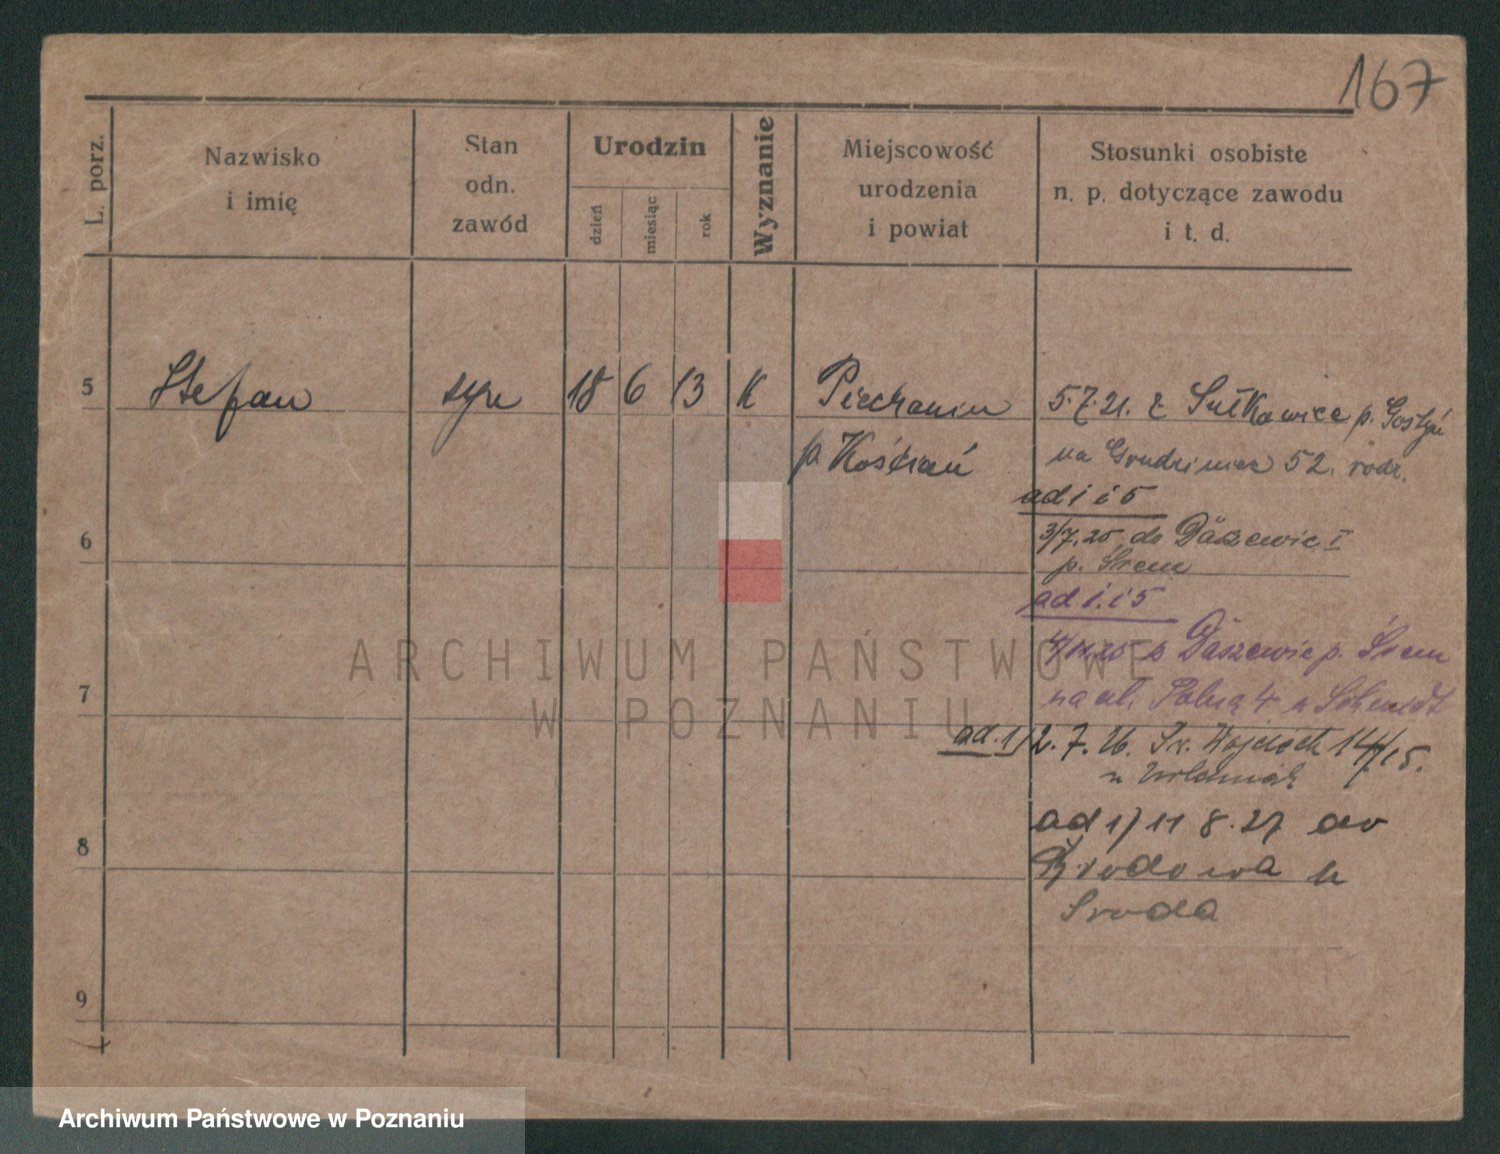 167
L. porz.
Nazwisko
i imię
Stan
odn.
zawód
Urodzin
dzień
miesiąc
rok
Wyznanie
Miejscowość
urodzenia
i powiat
Stosunki osobiste
n. p. dotyczące zawodu
i t. d.
5 Stefan syn 18 6 13 K Piechanin 5.7.21. z Sułkowice p. Gostyń
p. Kościan na 52. rodz.
ad 1 i 5
6 3/7.25. do Daszewic I
p. Śrem
ad 1. i 5
z Daszewic p. Śrem
7 na ul. Polną 4 u Schmidt
ad. 1) 2. 7. 26. Św. Wojciech 14/15.
u
ad 1) 11 8. 27 do
8 k
Sroda
9
ARCHIWUM PAŃSTWOWE
W POZNANIU
Archiwum Państwowe w Poznaniu